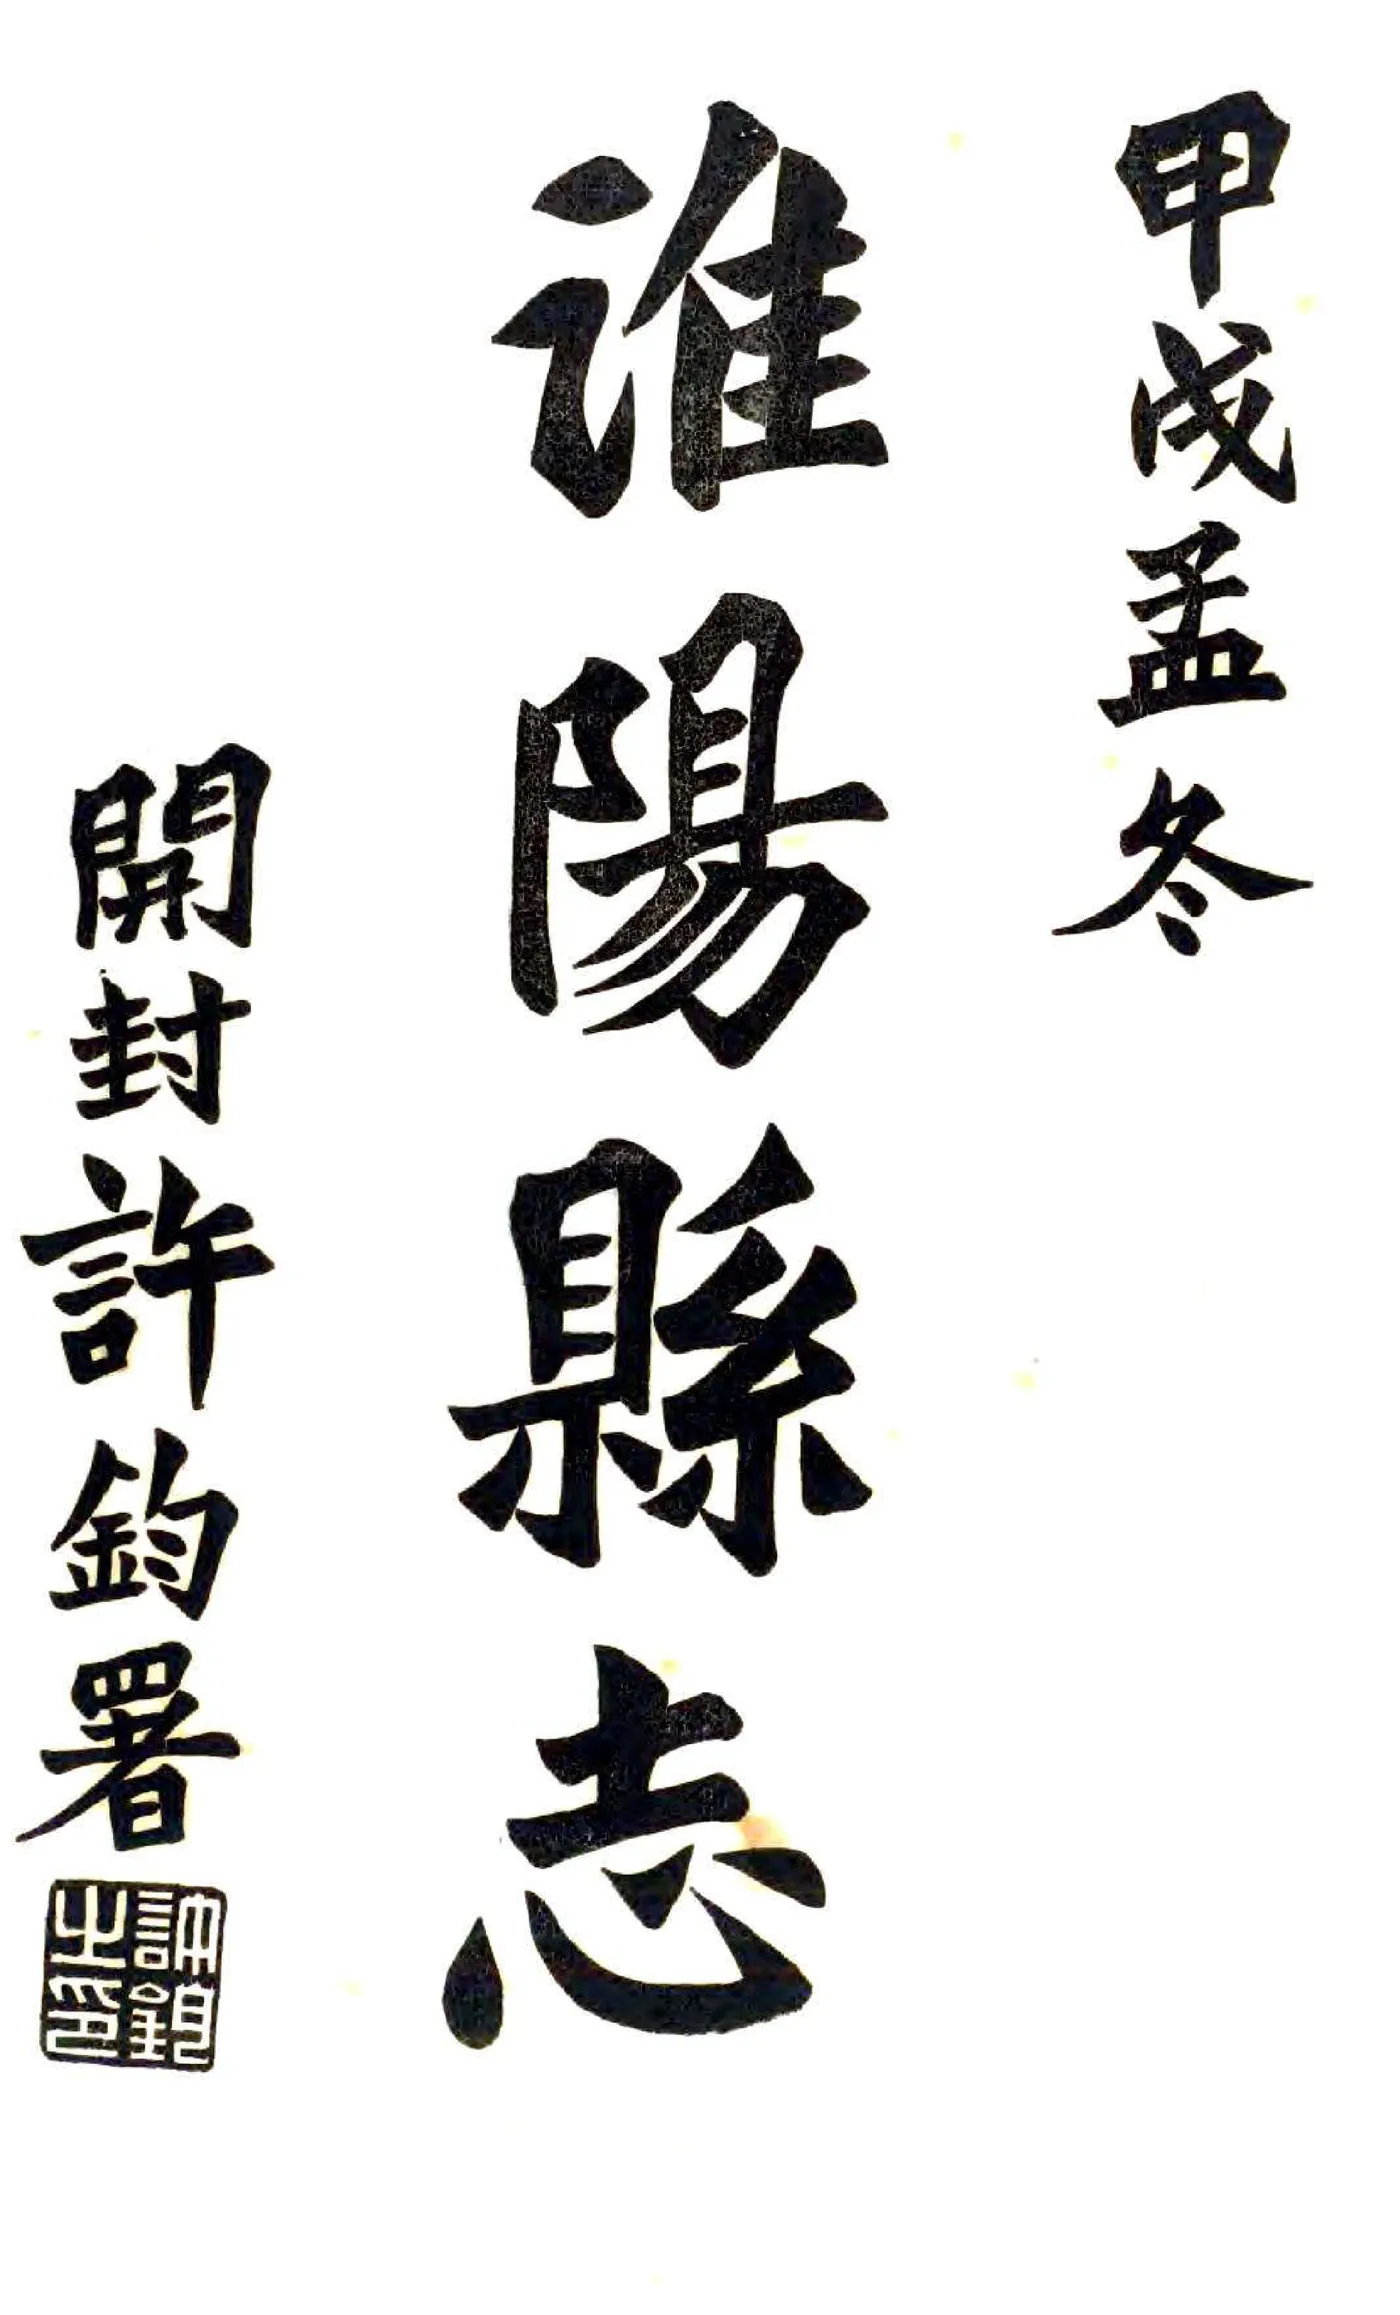 甲戌孟冬
淮陽縣志
開封許鈞署
許鈞之印